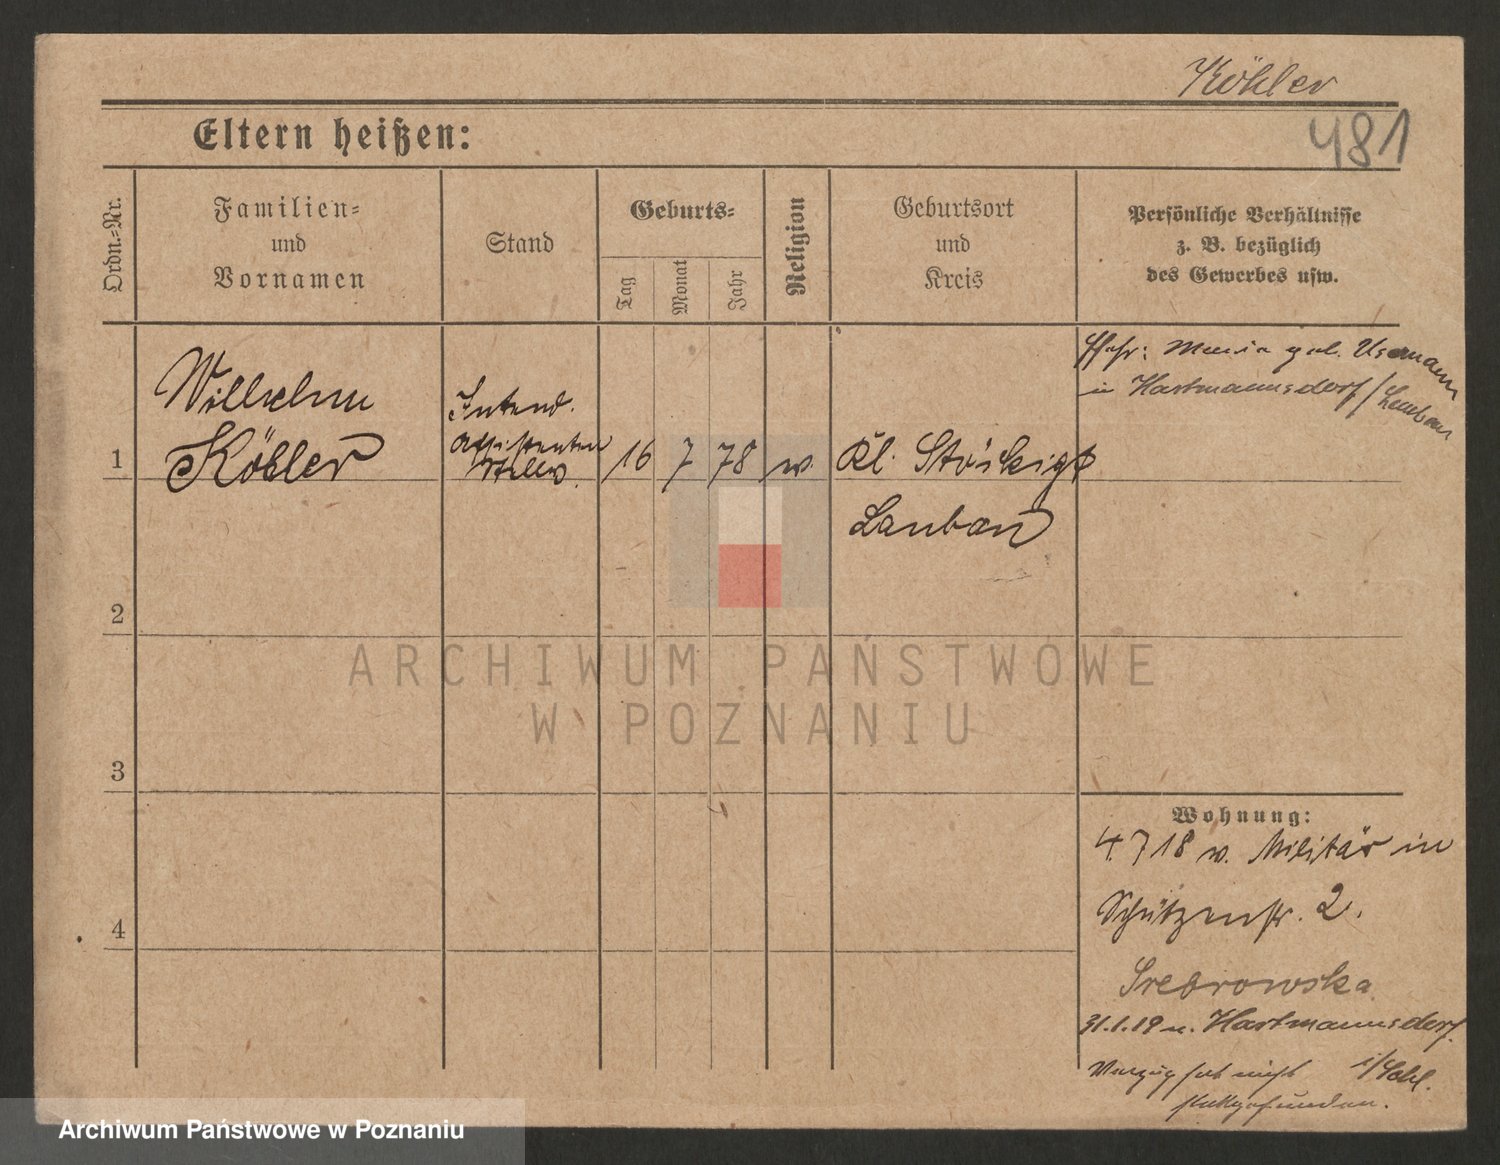 Köhler
481
Eltern heißen:
Ordn.-Nr.
Familien-
und
Vornamen
Stand
Geburts-
Tag
Monat
Jahr
Religion
Geburtsort
und
Kreis
Persönliche Verhältnisse
z. B. bezüglich
des Gewerbes usw.
1
Wilhelm
Köhler
Intend.
Assistenten
Stellv.
16
7
78
Kl. Stöckigt
Lauban
Maria geb.
in Hartmannsdorf/Lauban
2
3
4
Wohnung:
4.7 18 v. Militär in
Schützenstr. 2.
Srebrowska
31.1.19 n. Hartmannsdorf
i/Schl.
Verzug hat nicht
stattgefunden.
ARCHIWUM PAŃSTWOWE
W POZNANIU
Archiwum Państwowe w Poznaniu